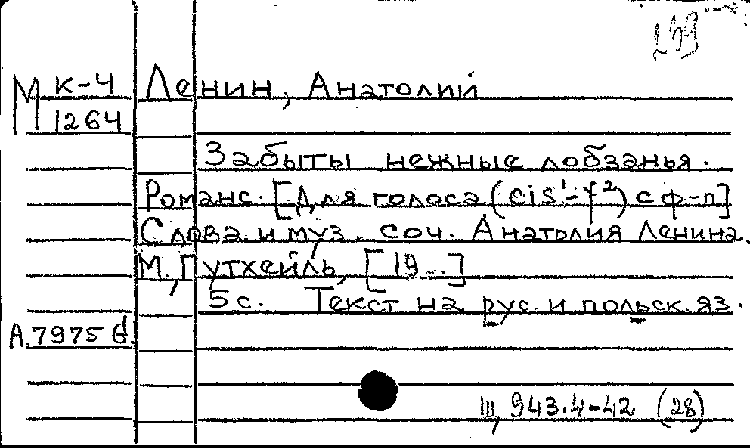 К-4 Ленин, Анатолий
М 1264
Забыты нежные лобзанья.
Романс. [Для голоса (cis¹-f²) с ф-п]
Слова и муз. соч. Анатолия Ленина.
М., Гутхейль, [19..]
5 с. Текст на рус. и польск. яз.
А.7975 б.
Ш, 943.4-42 (28)